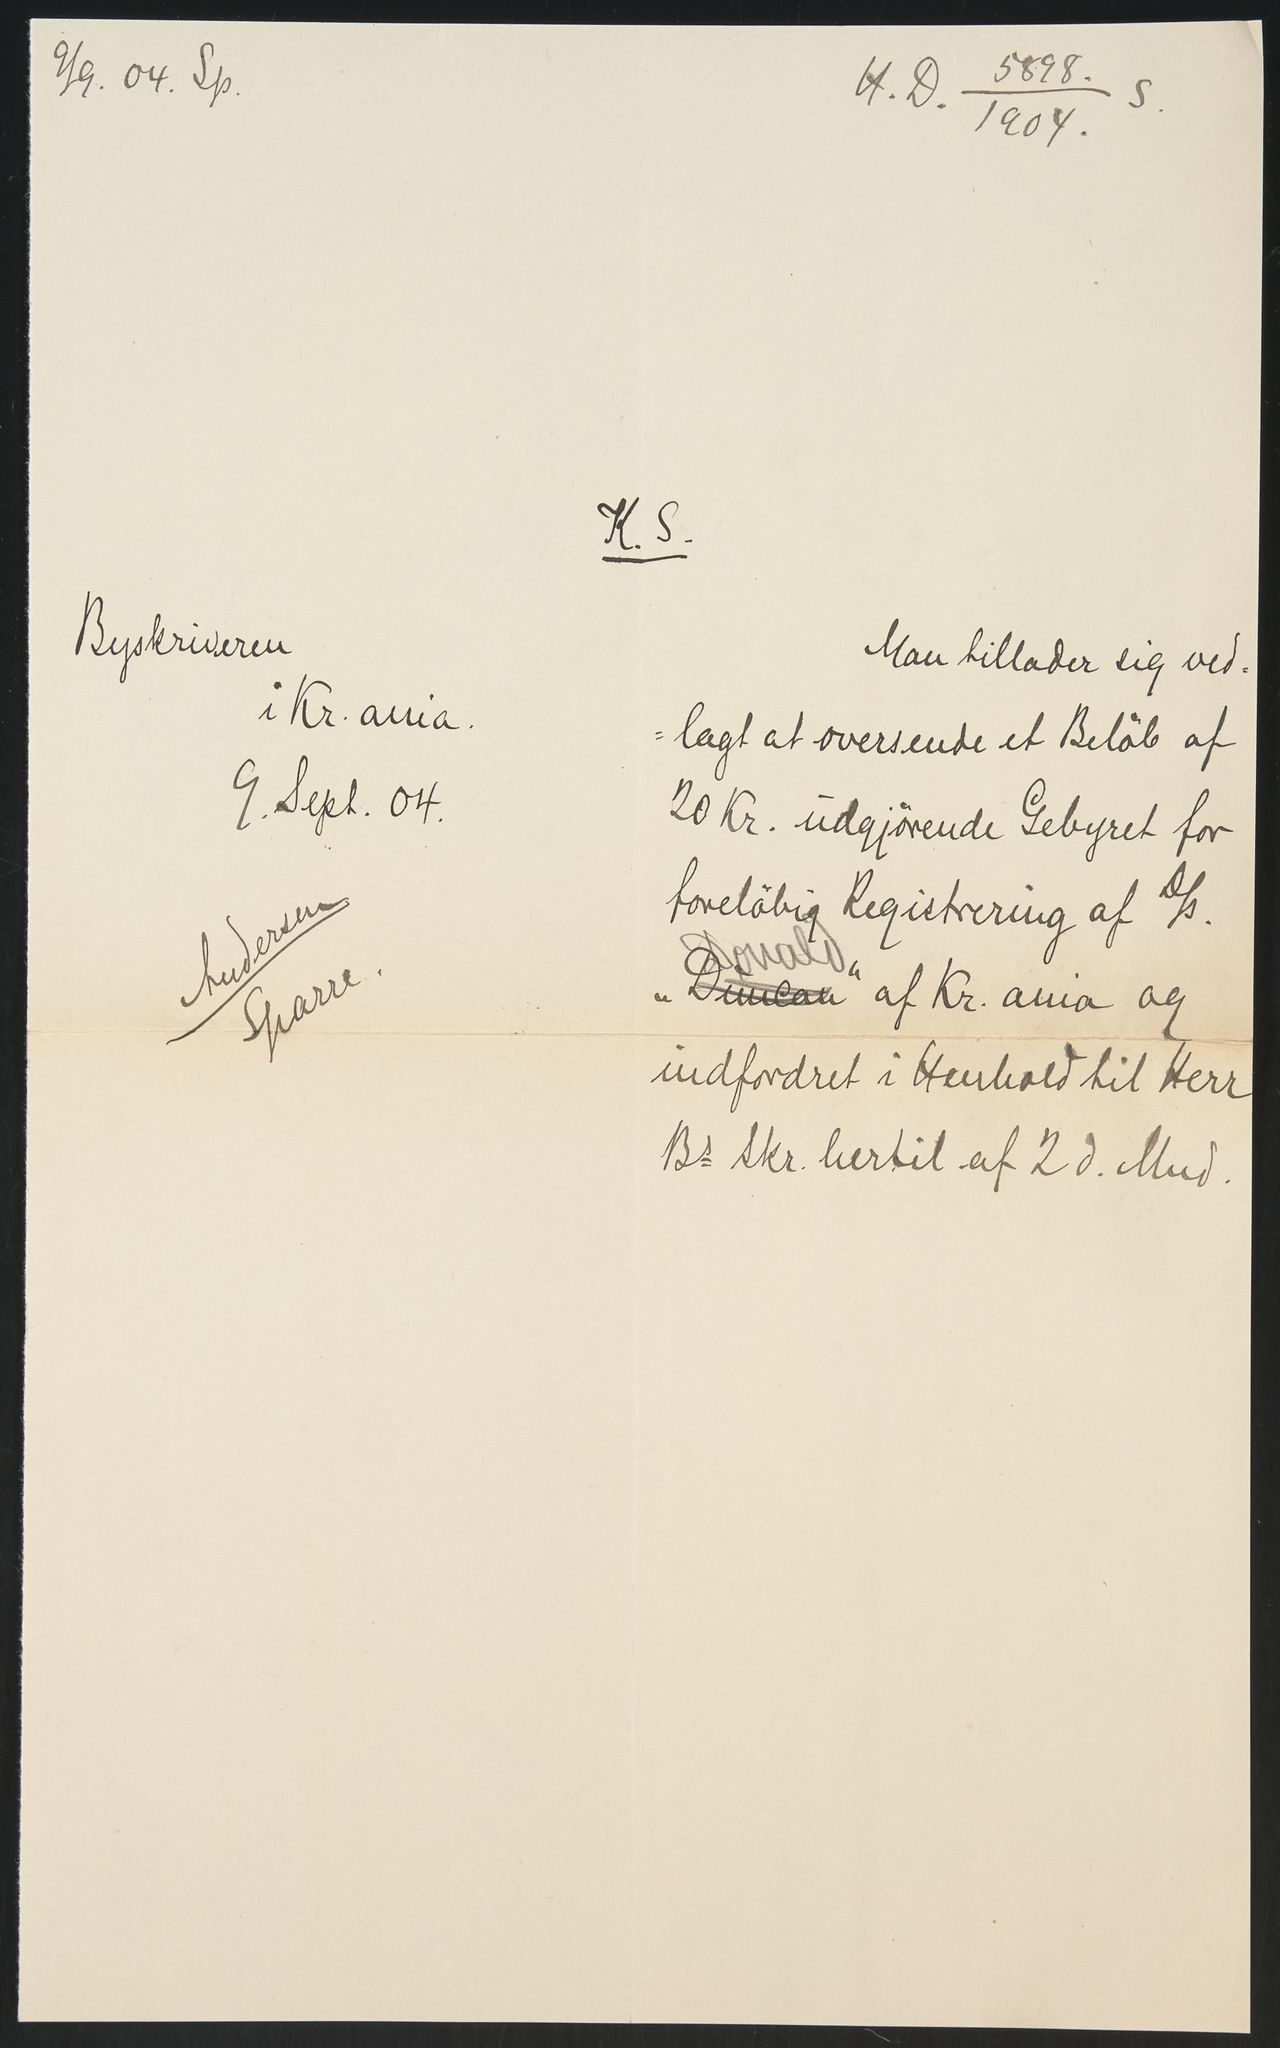 9/9. 04. Sp.
H. D. 5898./1904. S.
K. S.
Byskriveren
i Kr. ania.
9. Sept. 04.
Andersen
Sparre.
Man tillader sig ved=
=lagt at oversende et Beløb af
20 Kr. udgjörende Gebyret for
foreløbig Registrering af D/s.
Donald
„Duncan“ af Kr. ania og
indfordret i Henhold til Herr
Bs Skr. hertil af 2 d. Mnd.